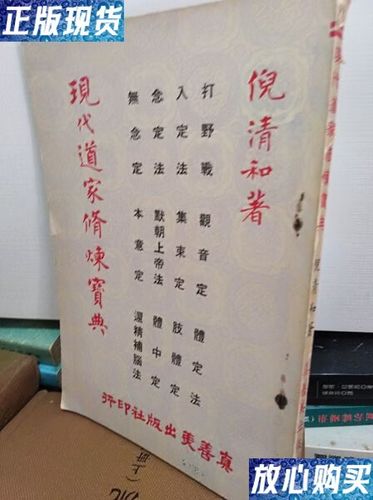 正版现货
倪清和著
打野戰 觀音定 體定法
入定法 集束定 肢體定
念定法 默朝上帝法 體中定
無念定 本意定 還精補腦法
現代道家脩煉寶典
真善美出版社印行
倪清和著
放心购买